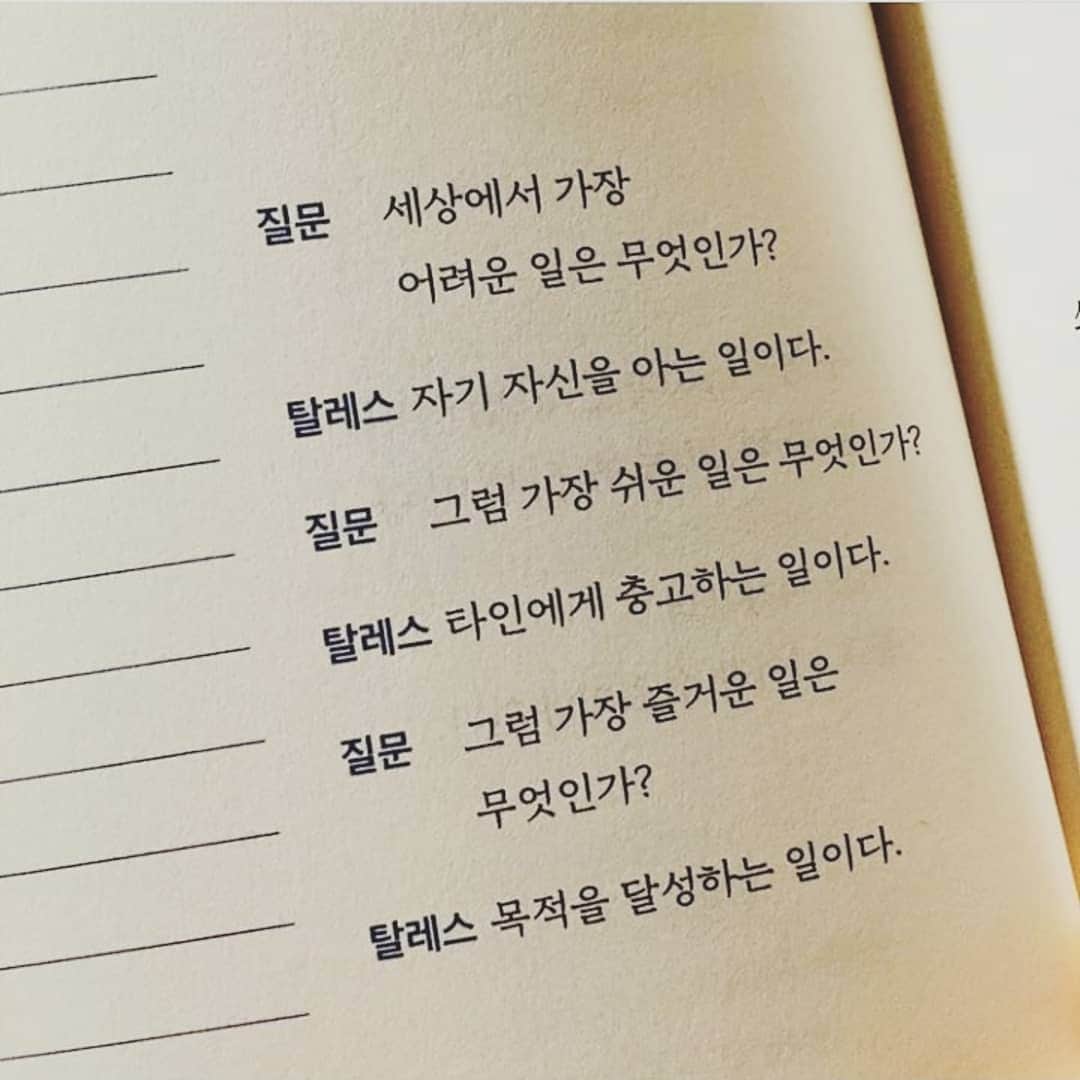 질문 세상에서 가장
어려운 일은 무엇인가?
탈레스 자기 자신을 아는 일이다.
질문 그럼 가장 쉬운 일은 무엇인가?
탈레스 타인에게 충고하는 일이다.
질문 그럼 가장 즐거운 일은
무엇인가?
탈레스 목적을 달성하는 일이다.